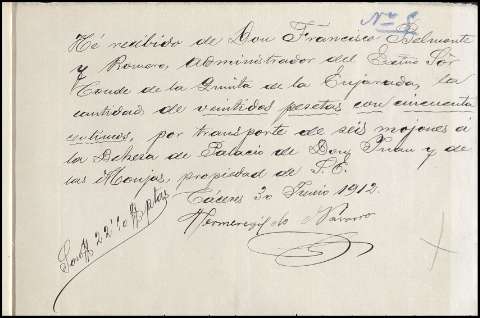 Nº 8
He recibido de Don Francisco Belmonte
y Romero, administrador del Exmo Sôr
Conde de la Quinta de la Enjarada, la
cantidad de veintidos pesetas con cincuenta
centimos, por transporte de seis mojones á
la Dehesa de Palacio de Don Juan y de
las Monjas, propiedad de S. E.
Cáceres 30 Junio 1912.
Hermenegildo Navarro
Son 22'50 ptas